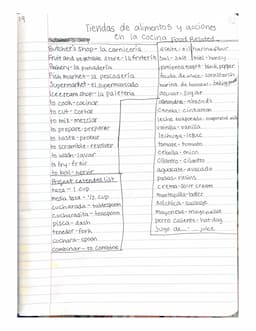 Tiendas de alimentos y acciones
en la cocina
Food Related
Butcher's shop - la carnicería
Fruit and vegetable store - la frutería
Bakery - la panadería
Fish market - la pescadería
Supermarket - el supermercado
Ice cream shop - la paletería
to cook - cocinar
to cut - cortar
to mix - mezclar
to prepare - preparar
to taste - probar
to scramble - revolver
to wash - lavar
to fry - freír
to boil - hervir
Project extended list
taza - 1 cup
media taza - 1/2 cup
cucharada - tablespoon
cucharadita - teaspoon
pizca - dash
tenedor - fork
cuchara - spoon
combinar - to combine
aceite - oil
harina - flour
sal - salt
miel - honey
pimienta negra - black pepper
fécula de maíz - cornstarch
azúcar - sugar
almendra - almonds
canela - cinnamon
leche evaporada - evaporated milk
vainilla - vanilla
lechuga - lettuce
tomate - tomato
cebolla - onion
cilantro - cilantro
aguacate - avocado
pasas - raisins
crema - sour cream
mantequilla - butter
salchicha - sausage
mayonesa - mayonnaise
perro caliente - hot dog
jugo de ... juice